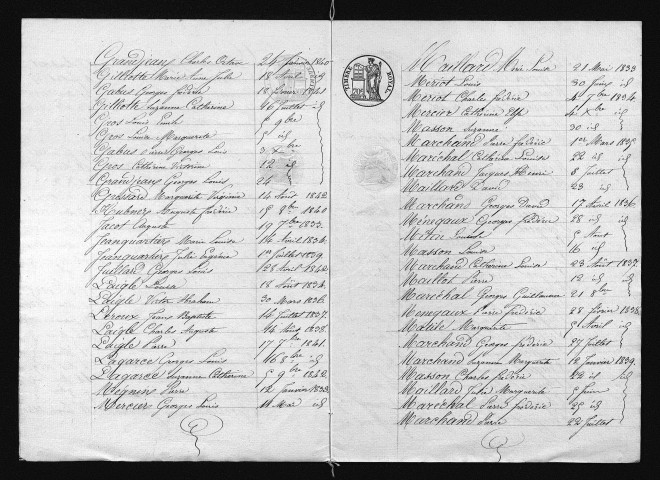 Grandjean Charles 24 1840
Gillotte Marie Anne Julie 18 Avril id
Gabus Georges frédéric 18 1841
Gillotte Suzanne Catherine 16 Juillet id
Gros Louis Emile 6 9bre
Gros Louise Marguerite 5 id
Gabus Pierre Georges Louis 3 Xbre
Gros Catherine Victorine 12 id
Grandjean Georges Louis 24
Marguerite Virginie 14 Août 1842
Hubner Auguste frédéric 15 8bre 1840
Jacot Auguste 19 7bre 1833.
Jeanquartier Marie Louise 14 Avril 1836.
Jeanquartier Julie Eugénie 1er Juillet 1839.
Juillard Georges Louis 28 Avril 1842
Laigle Louise 18 Août 1834.
Laigle Victor Abraham 30 Mars 1836.
Leroux Jean Baptiste 14 Juillet 1837.
Laigle Charles Auguste 1838.
Laigle Pierre 17 1841.
Lagarce Georges Louis 16 8bre id
Lagarce Suzanne Catherine 5 9bre 1842.
Megnin Pierre 12 Janvier 1833.
Mercier Georges Louis 11 Mai id
TIMBRE ROYAL
Maillard Marie Louise 21 Mai 1833
Meriot Louis 30 Juin id
Meriot Charles frédéric 4 7bre 1834.
Mercier Catherine 4 Xbre id
Masson Suzanne 30 id
Marchand Pierre frédéric 1er Mars 1835.
Maréchal Catherine Louise 22 id id
Marchand Jacques Henri 8 Juillet
Maillard David 23 id
Marchand Georges David 17 Avril 1836.
Ménegaux Georges frédéric 28 id id
Août
Masson Louise 16 id
Marchand Catherine Louise 23 Août 1837.
Maillot Pierre 12 id
Maréchal Georges Guillaume 21 8bre
Ménegaux Pierre frédéric 28 février 1838.
Marguerite 5 Avril id
Marchand Georges frédéric 27 Juillet
Marchand Suzanne Marguerite 12 Janvier 1839.
Masson Charles frédéric 22 id id
Maillard Julie Marguerite 5
Maréchal Pierre frédéric 25 id
Marchand 22 Juillet